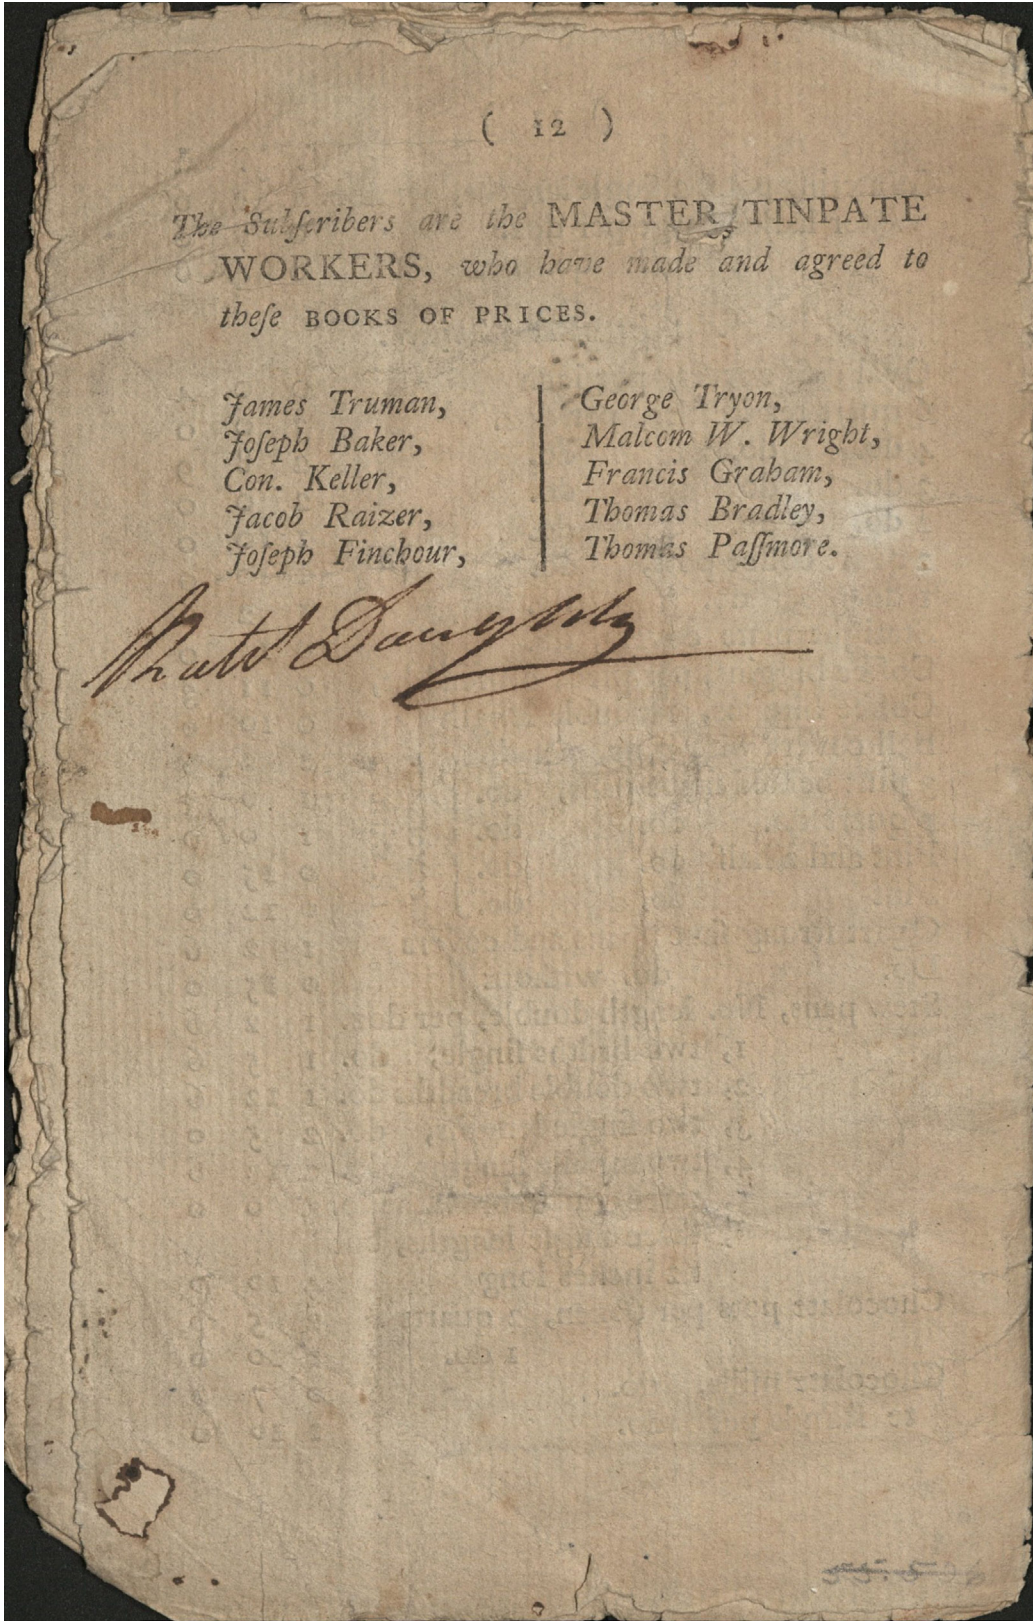 ( 12 )
The Subſcribers are the MASTER TINPATE
WORKERS, who have made and agreed to
theſe BOOKS OF PRICES.
James Truman,
Joſeph Baker,
Con. Keller,
Jacob Raizer,
Joſeph Finchour,
George Tryon,
Malcom W. Wright,
Francis Graham,
Thomas Bradley,
Thomas Paſſmore.